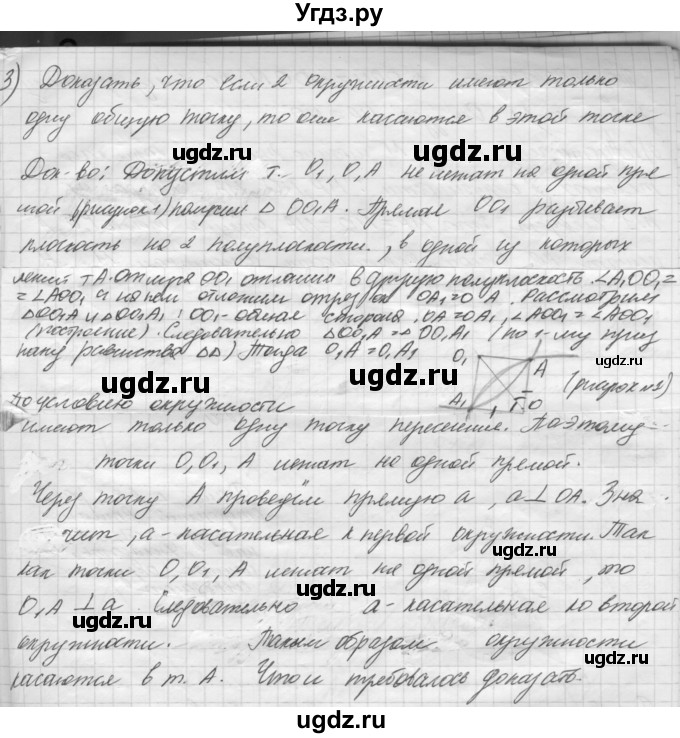 Угдз.ру
3) Доказать, что если 2 окружности имеют только
одну общую точку, то они касаются в этой точке
ugdz.ru ugdz.ru
Док-во: Допустим т. O₁, O, A не лежат на одной пря
мой (рисунок 1) получим △ OO₁A. Прямая OO₁ разбивает
ugdz.ru
плоскость на 2 полуплоскости, в одной из которых
лежит т.A. От луча OO₁ отложим в другую полуплоскость ∠A₁OO₁=
=∠AOO₁ и на нем отложим отрезок OA₁=OA. Рассмотрим
△OO₁A и △OO₁A₁: OO₁-общая сторона, OA=OA₁, ∠AOO₁=∠A₁OO₁
(построение). Следовательно △OO₁A=△OO₁A₁ (по 1-му приз
наку равенства △△) Тогда O₁A=O₁A₁
O₁
A
(рисунок №1)
A₁
O
ugdz.ru ugdz.ru
по условию окружности
имеют только одну точку пересечения. Поэтому
точки O, O₁, A лежат на одной прямой.
ugdz.ru
Через точку A проведём прямую a, a⊥OA. Зна
ugdz.ru
чит, a-касательная к первой окружности. Так
ugdz.ru
как точки O, O₁, A лежат на одной прямой, то
ugdz.ru
O₁A ⊥ a. Следовательно a-касательная ко второй
окружности. Таким образом окружности
ugdz.ru ugdz.ru
касаются в т. A. Что и требовалось доказать.
ugdz.ru